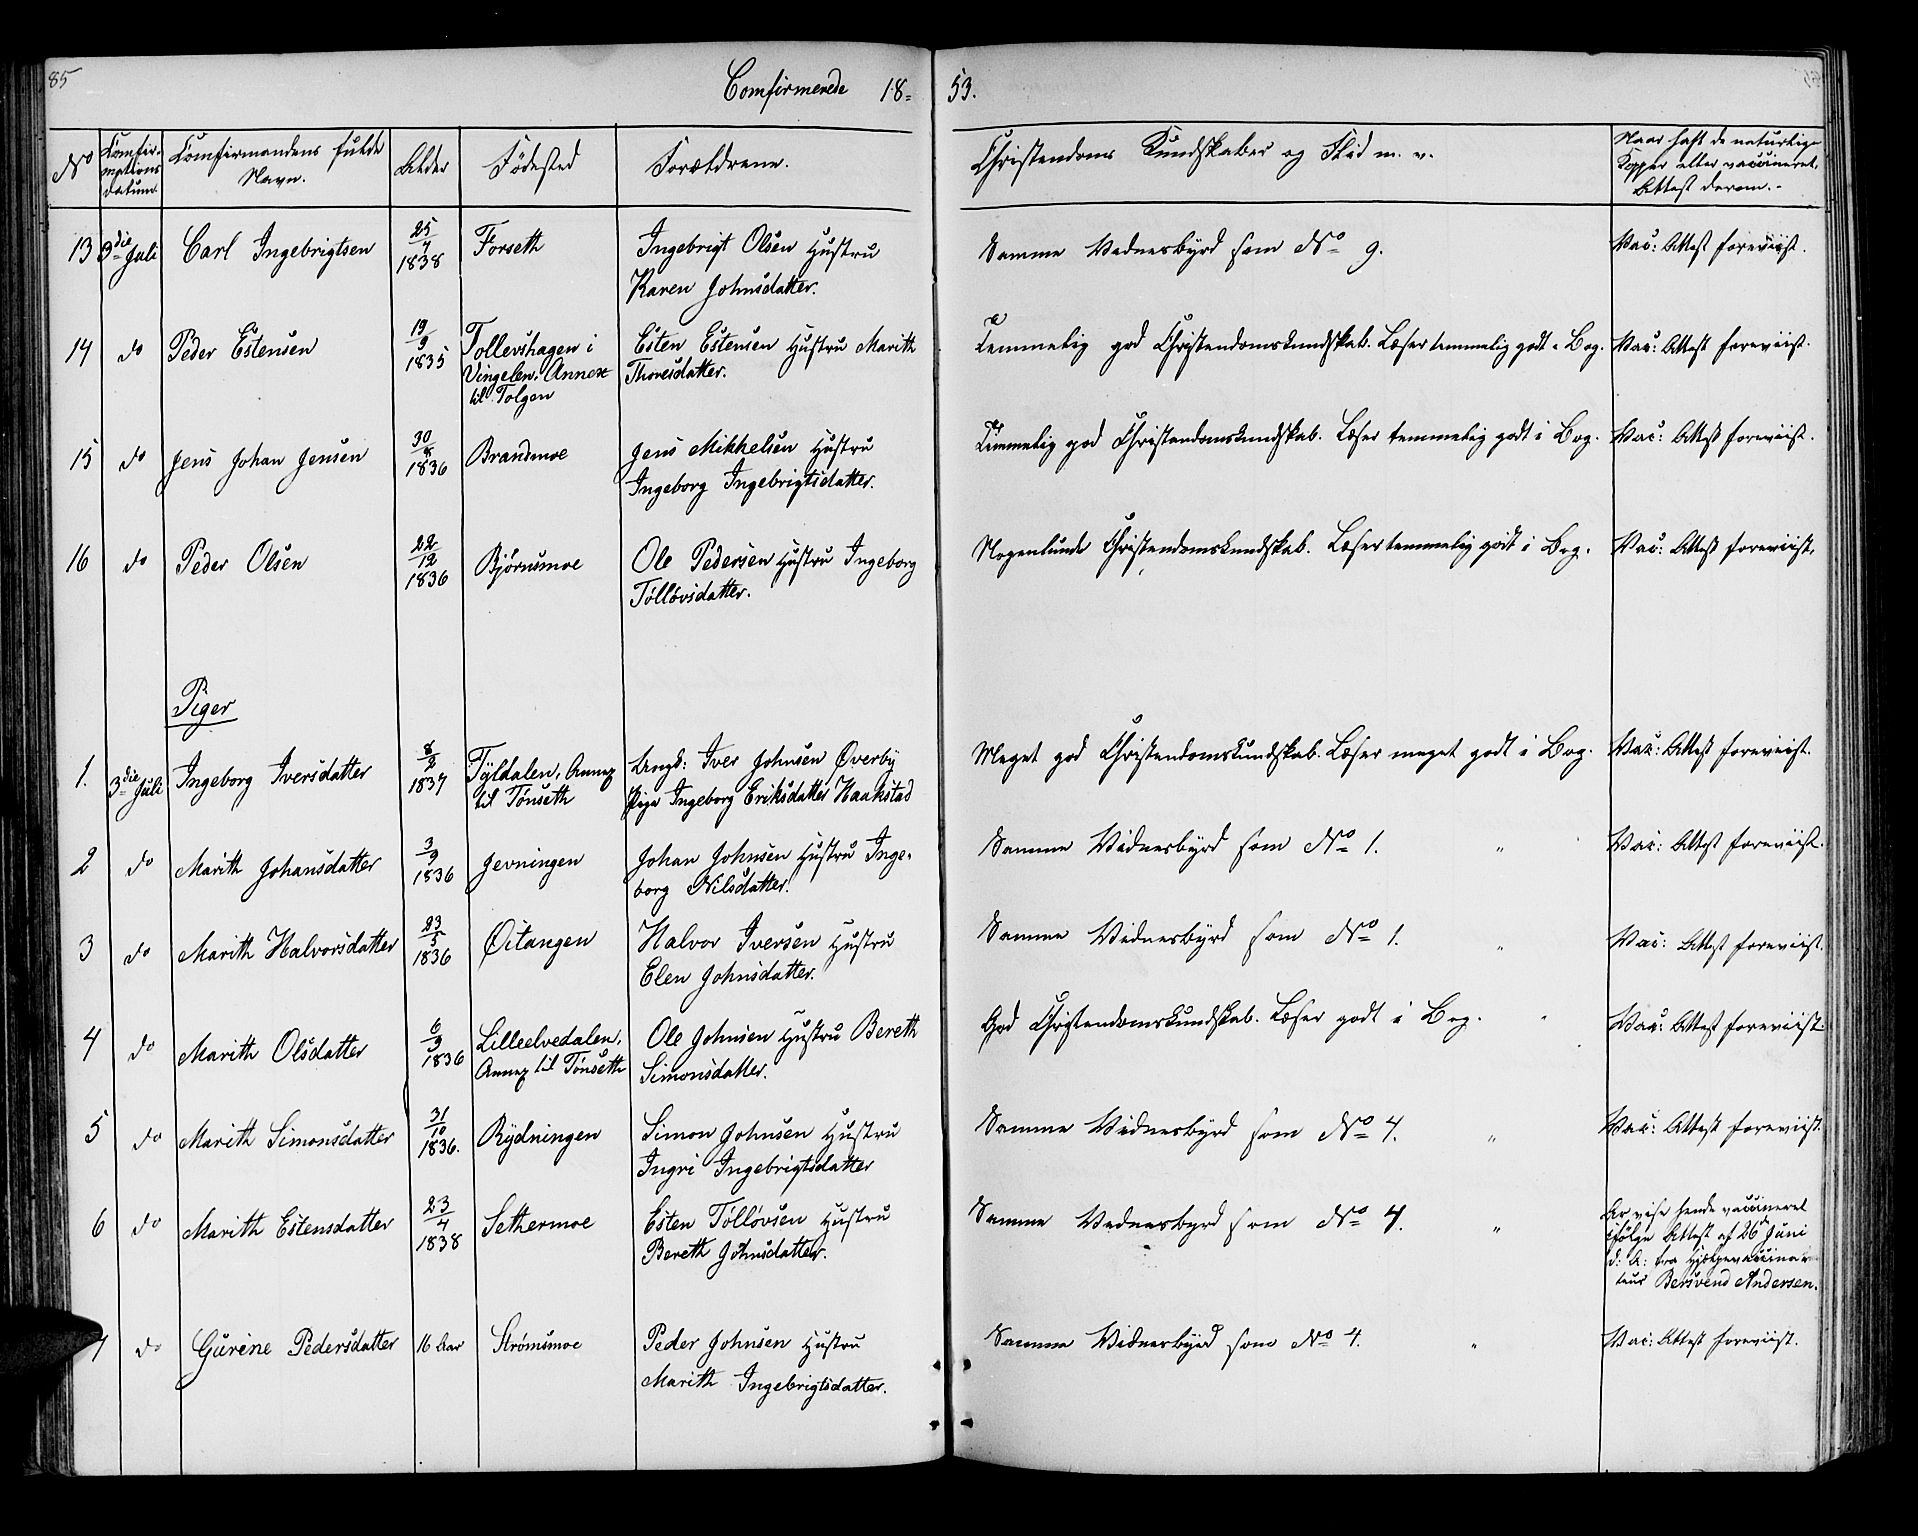 85
Comfirmerede 18=53.
No
Comfir-
mations
datum.
Comfirmandens fulde
Navn.
Alder
Fødested
Forældrene.
Christendoms Kundskaber og Flid m. v.
Naar haft de naturlige
Kopper eller vaccineret,
Attest derom.-
13 3die Juli Carl Ingebrigtsen 25/7 1838 Forseth Ingebrigt Olsen Hustru
Karen Johnsdatter.
Samme Vidnesbyrd som No 9. Vac: Attest foreviist.
14 do Peder Estensen 19/9 1835 Tollevshagen i
Vingelen, Annex
til Tolgen
Esten Estensen Hustru Marith
Thoresdatter.
Temmelig god Christendomskundskab. Læser temmelig godt i Bog. Vac: Attest foreviist.
15 do Jens Johan Jensen 30/8 1836 Brandmoe Jens Mikkelsen Hustru
Ingeborg Ingebrigtsdatter.
Temmelig god Christendomskundskab. Læser temmelig godt i Bog. Vac: Attest foreviist.
16 do Peder Olsen 22/12 1836 Bjørnsmoe Ole Pedersen Hustru Ingeborg
Tølløvsdatter.
Nogenlunde Christendomskundskab. Læser temmelig godt i Bog. Vac: Attest foreviist.
Piger
1. 3die Juli Ingeborg Iversdatter 8/2 1837 Tyldalen, Annex
til Tønseth
Ungk: Iver Johnsen Øverby
Pige Ingeborg Eriksdatter Haakstad
Meget god Christendomskundskab. Læser meget godt i Bog. Vac: Attest foreviist.
2 do Marith Johansdatter 3/9 1836 Jevningen Johan Johnsen Hustru Inge-
borg Nilsdatter.
Samme Vidnesbyrd som No 1. " Vac: Attest foreviist.
3 do Marith Halvorsdatter 23/5 1836 Øitangen Halvor Iversen Hustru
Elen Johnsdatter.
Samme Vidnesbyrd som No 1. " Vac: Attest foreviist.
4 do Marith Olsdatter 6/9 1836 Lilleelvedalen,
Annex til Tønseth
Ole Johnsen Hustru Bereth
Simonsdatter.
God Christendomskundskab. Læser godt i Bog. " Vac: Attest foreviist.
5 do Marith Simonsdatter 31/10 1836. Rydningen Simon Johnsen Hustru
Ingri Ingebrigtsdatter
Samme Vidnesbyrd som No 4. " Vac: Attest foreviist.
6 do Marith Estensdatter 23/4 1838 Sethermoe Esten Tølløvsen Hustru
Bereth Johnsdatter.
Samme Vidnesbyrd som No 4. "
hende vaccineret
ifølge Attest af 26 Juni
d: A: fra Hjælpevaccina-
teur Bersvend Andersen.
7 do Gurine Pedersdatter 16 Aar Strømsmoe Peder Johnsen Hustru
Marith Ingebrigtsdatter.
Samme Vidnesbyrd som No 4. " Vac: Attest foreviist.